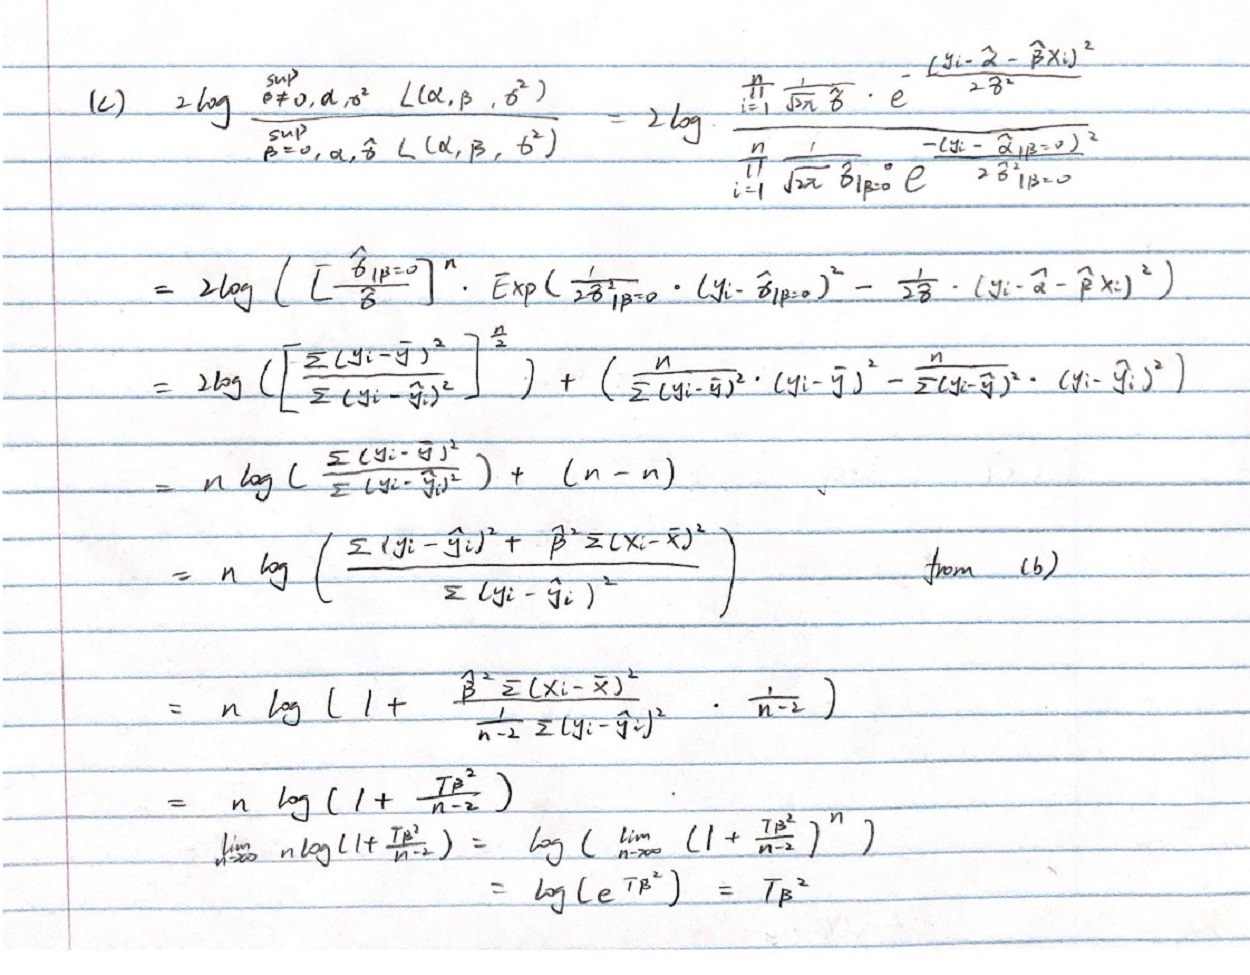 (c) 2log \frac{\sup_{β≠0, α, σ²} L(α, β, σ²)}{\sup_{β=0, α, \hat{σ}} L(α, β, σ²)} = 2log · \frac{\prod_{i=1}^{n} \frac{1}{\sqrt{2π} \hat{σ}} · e^{-\frac{(y_i - \hat{α} - \hat{β}x_i)^2}{2\hat{σ}^2}}}{\prod_{i=1}^{n} \frac{1}{\sqrt{2π} \hat{σ}_{|β=0}} · e^{\frac{-(y_i - \hat{α}_{|β=0})^2}{2\hat{σ}^2_{|β=0}}}}
= 2log ( [ \frac{\hat{σ}_{|β=0}}{\hat{σ}} ]^n · Exp( \frac{1}{2\hat{σ}^2_{|β=0}} · (y_i - \hat{σ}_{|β=0})^2 - \frac{1}{2\hat{σ}} · (y_i - \hat{α} - \hat{β}x_i)^2 )
= 2log ( [ \frac{Σ(y_i - \bar{y})^2}{Σ(y_i - \hat{y}_i)^2} ]^{\frac{n}{2}} ) + ( \frac{n}{Σ(y_i - \bar{y})^2} · (y_i - \bar{y})^2 - \frac{n}{Σ(y_i - \hat{y})^2} · (y_i - \hat{y}_i)^2 )
= n log ( \frac{Σ(y_i - \bar{y})^2}{Σ(y_i - \hat{y}_i)^2} ) + (n - n)
= n log ( \frac{Σ(y_i - \hat{y}_i)^2 + \hat{β}^2 Σ(x_i - \bar{x})^2}{Σ(y_i - \hat{y}_i)^2} ) from (b)
= n log ( 1 + \frac{\hat{β}^2 Σ(x_i - \bar{x})^2}{\frac{1}{n-2} Σ(y_i - \hat{y}_i)^2} · \frac{1}{n-2} )
= n log ( 1 + \frac{T_β^2}{n-2} )
\lim_{n→∞} n log (1 + \frac{T_β^2}{n-2}) = log ( \lim_{n→∞} (1 + \frac{T_β^2}{n-2})^n )
= log (e^{T_β^2}) = T_β^2